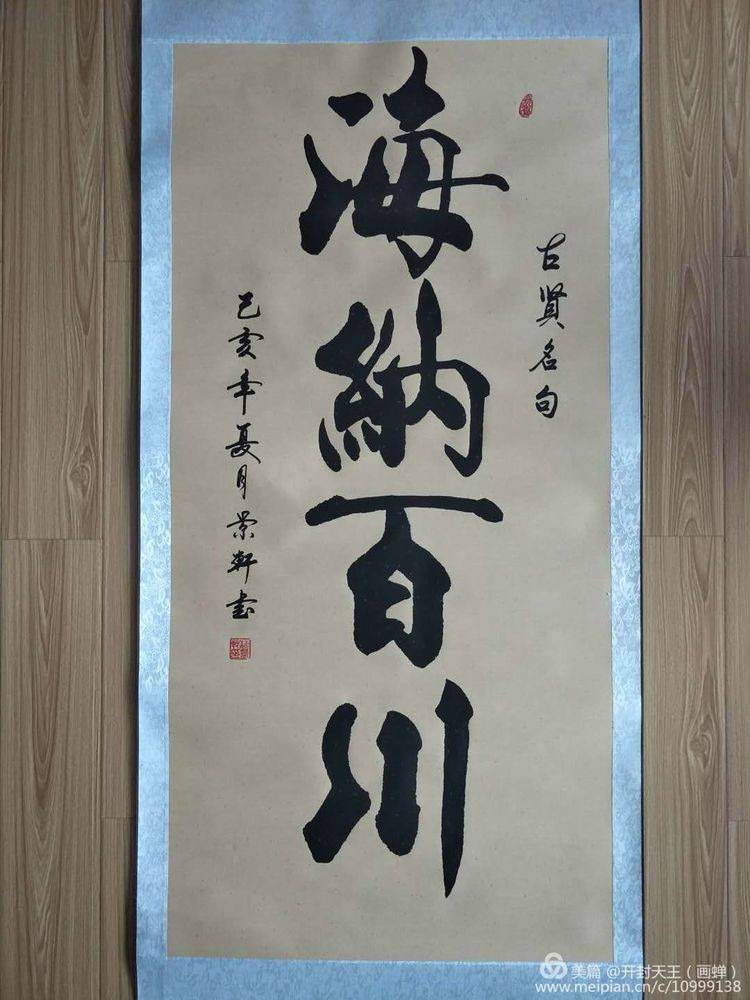 古贤名句
海納百川
己亥年夏月景軒书
美篇 @开封天王（画蝉）
www.meipian.cn/c/10999138